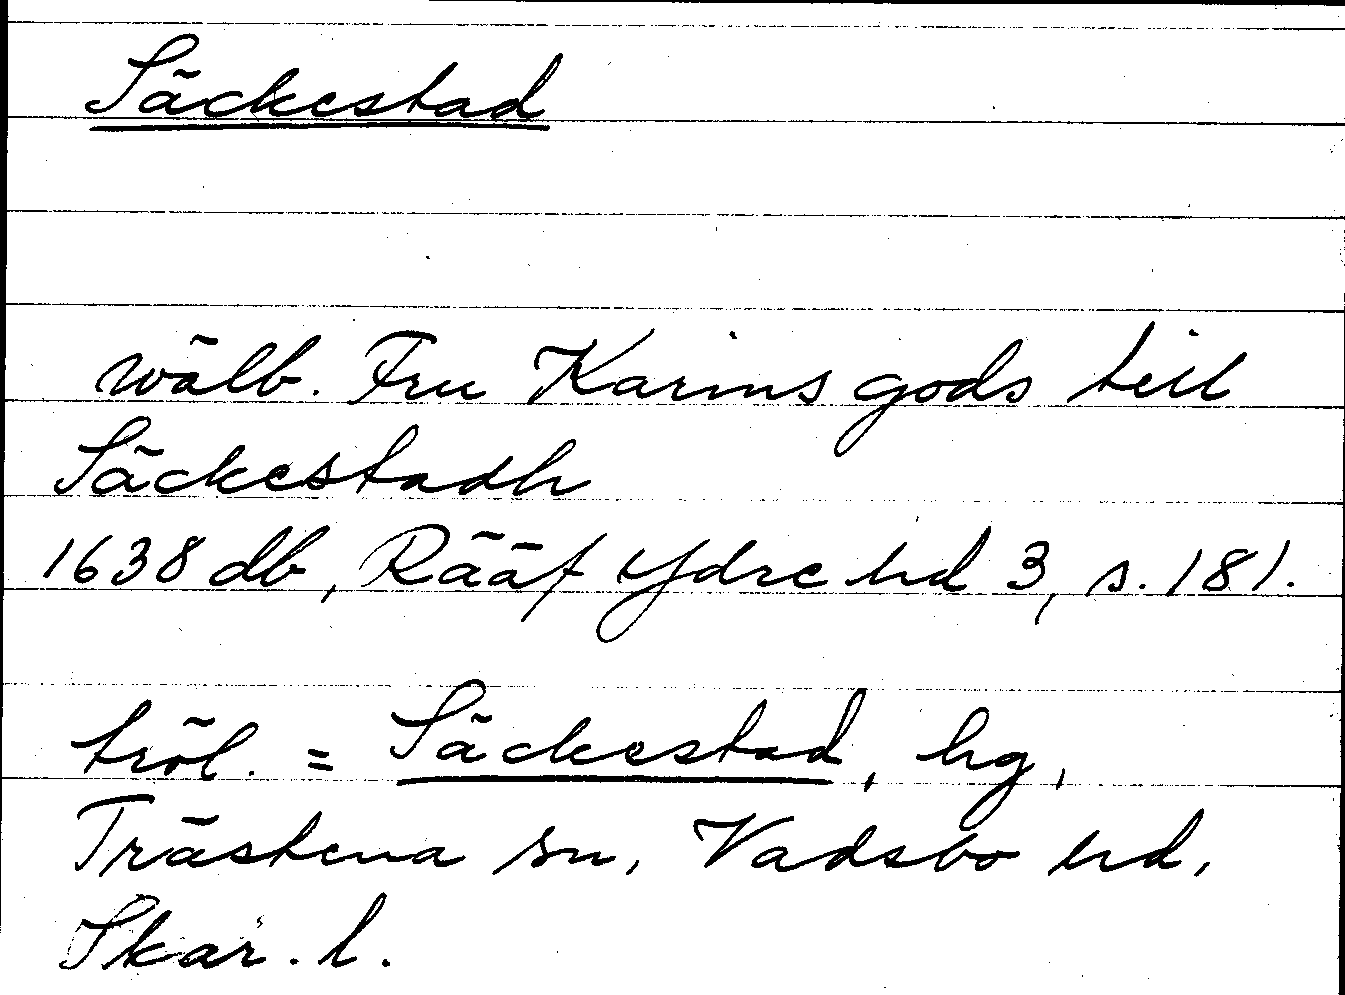 Säckestad
Wälb. Fru Karins gods till
Säckestadh
1638 db, Rääf Ydre hd 3, s. 181.
tröl. = Säckestad, hg,
Trästena sn, Vadsbo hd,
Skar. l.